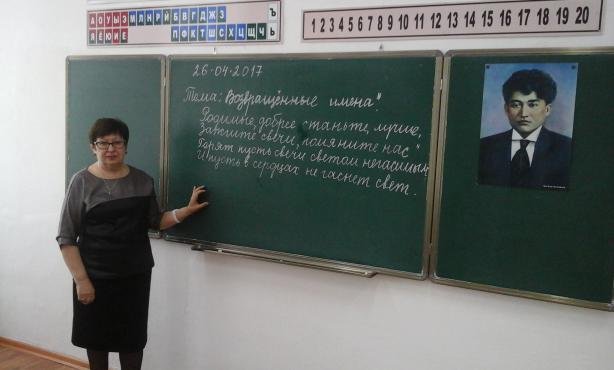 А О У Ы Э М Л Н Р Й Б В Г Д Ж З Ъ
Я Ё Ю И Е П Ф К Т Ш С Х Ц Щ Ч Ь
1 2 3 4 5 6 7 8 9 10 11 12 13 14 15 16 17 18 19 20
26.04.2017
Тема: Возвращённые имена"
Родимые, добрее станьте, лучше,
Зажгите свечи, помяните нас"
Горят пусть свечи светом негасимым
И пусть в сердцах не гаснет свет.